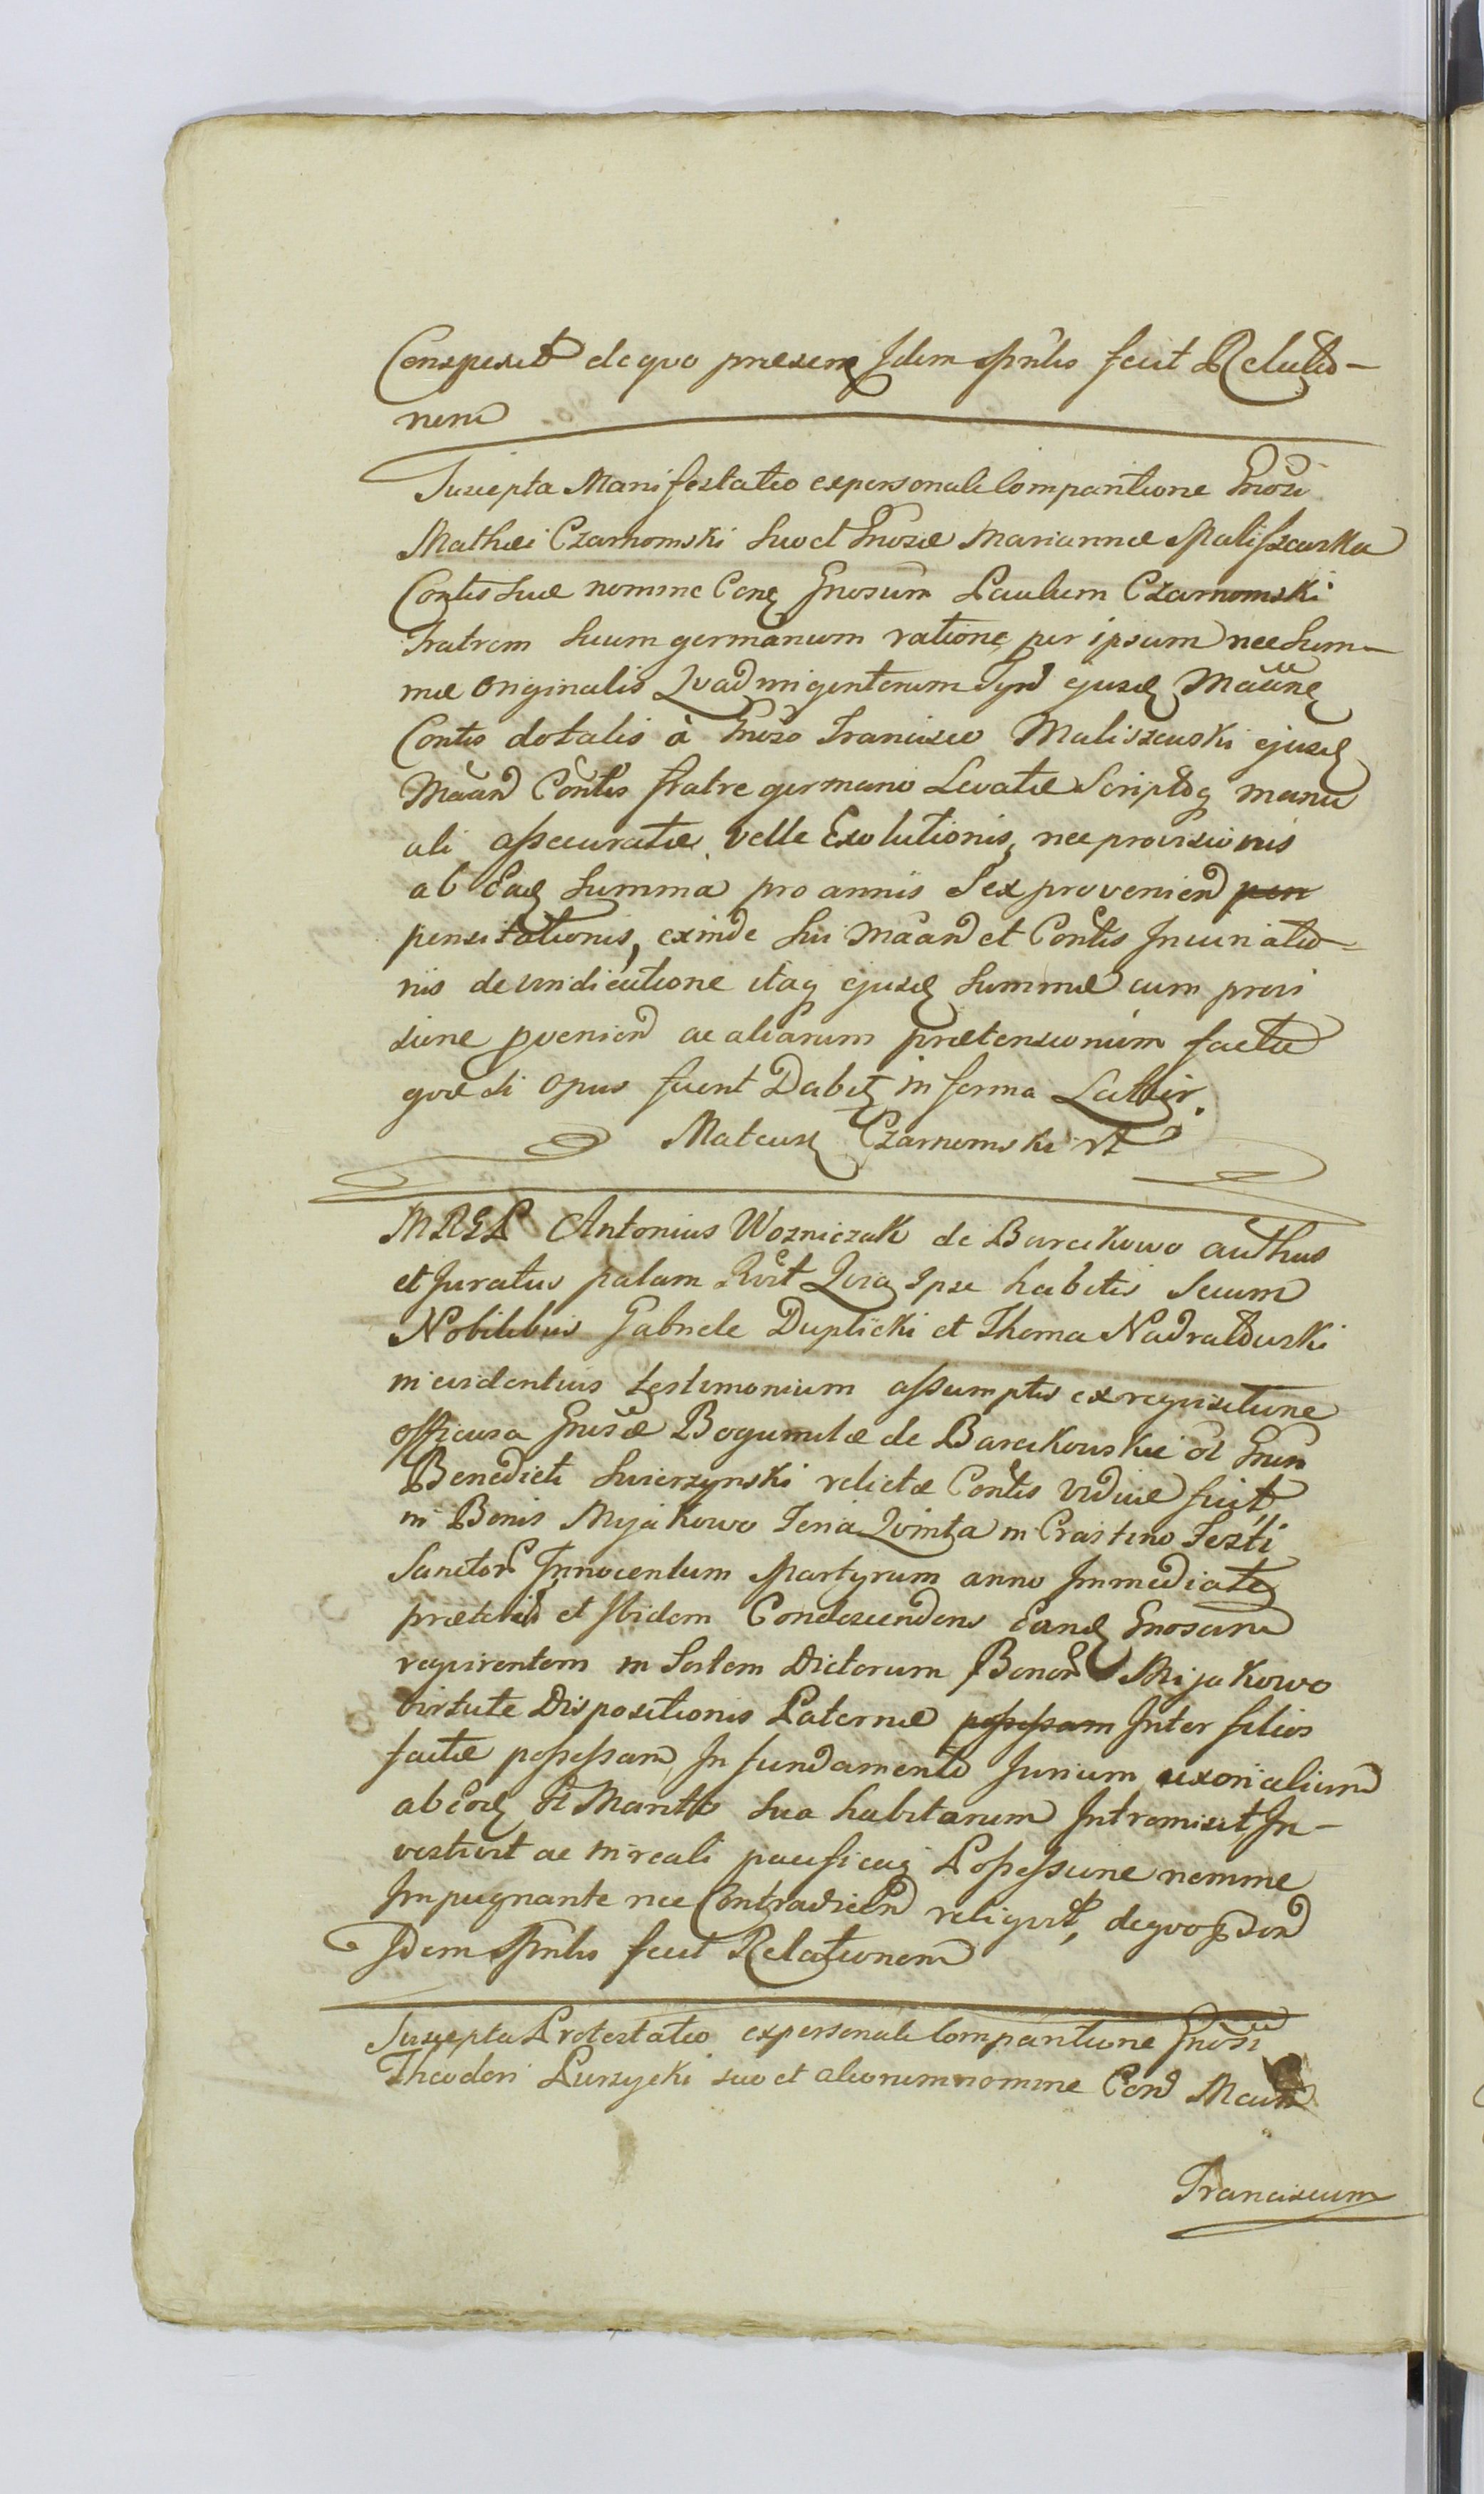 Conspexit de quo præsens Idem Mnlis fecit Relatio-
nem
Suscepta Manifestatio ex personali Comparitione Gnosi
Mathei Czarnomski suo et Gnosæ Mariannæ Maliszewska
Contis suæ nomine Con Gnosum Paulum Czarnomski
Fratrem suum germanum ratione per ipsum nec Sum-
mæ originalis Quadringentorum Tynf ejusd
Contis dotalis à Gnoso Francisco Maliszewski ejusd
Contis fratre germano Levatæ Scriptoq manu
ali assecuratæ velle Exolutionis, nec provisionis
ab Ead Summa pro annis Sex proveniend pen
pensitationis, exinde sui et Contis Injuriatio=
nis de vindicatione itaq ejusd Summæ cum provi
sione pveniend ac aliarum prætensionum factæ
quæ si opus fuerit Dabit in forma Latior.
Mateusz Czarnomski
MREL Antonius Wozniczak de Barcikowo authus
et Juratus palam Rvit Quia Ipse habitis Secum
Nobilibus Gabriele Duplicki et Thoma
in evidentius testimonium assumptis ex requisitione
officiosa Gnosæ Bogumilæ de Barcikowskie ol Gnsi
Benedicti Swierzynski relictæ Contis Viduæ fuit,
in Bonis Myjakowo Feria Quinta in Crastino Festi
Sanctor Innocentum Martyrum anno Immediate
præterito et Ibidem Condescendens Eand Gnosam
requirentem in Sortem Dictorum Bonor Mijakowo
virtute Dispositionis Paternæ possessam Inter filios
factæ possessam In fundamento Jurium uxorialium
ab Eod ol Marito suo habitarum Intromisit In-
vestivit ac in reali pacificaq Possessione nemine
Impugnante nec Contradicen reliquit, de quo
Idem Mnlis fecit Relationem
Suscepta Protestatio ex personali Comparitione Gnosi
Theodori Pursycki suo et aliorum nomine Con
Franciscum